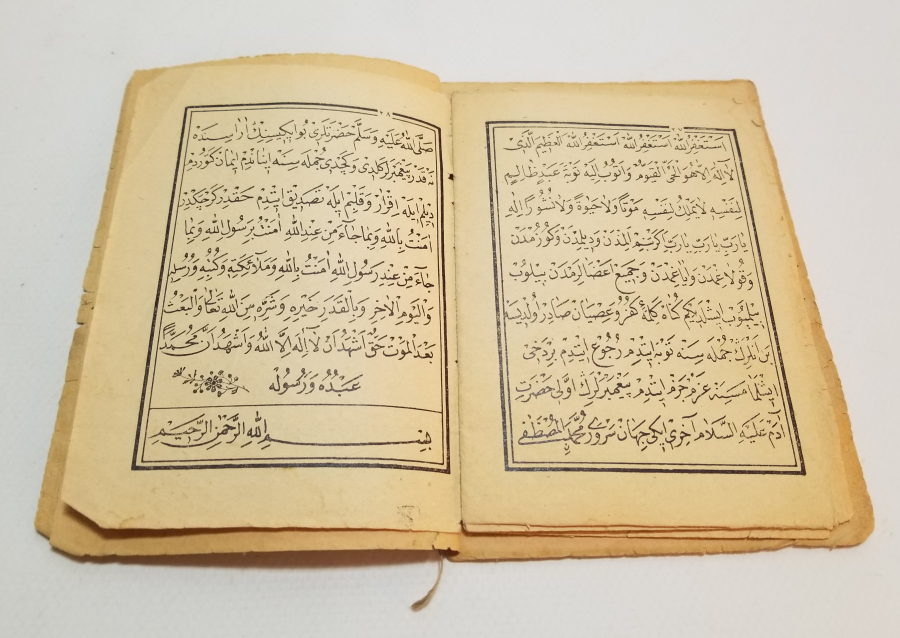 ٢٧
اَسْتَغْفِرُ اللّٰهَ اَسْتَغْفِرُ اللّٰهَ اَسْتَغْفِرُ اللّٰهَ الْعَظِيمَ الَّذِي
لَا اِلٰهَ اِلَّا هُوَ الْحَيَّ الْقَيُّومَ وَاَتُوبُ اِلَيْهِ تَوْبَةَ عَبْدٍ ظَالِمٍ
لِنَفْسِهِ لَا يَمْلِكُ لِنَفْسِهِ مَوْتًا وَلَا حَيٰوةً وَلَا نُشُورًا اِلٰهِي
يَارَبِّ يَارَبِّ يَارَبِّ اكَرْ بَنِمْ اَلِمْدَنْ وَدِيلِمْدَنْ وَكُوزُمْدَنْ
وَقُولَاغِمْدَنْ وَاَيَاغِمْدَنْ وَجَمِيعِ اَعْضَالَرِمْدَنْ بِيلُوبْ
بِيلْمَيُوبْ اِيشْلَدِيكِمْ كُنَاهْ كَلِمَۀِ كُفْرْ وَعِصْيَانْ صَادِرْ اُولْدِيسَه
بَنْ اَنْلَرِكْ جُمْلَه سِنَه تَوْبَه اِيتْدِمْ رُجُوعْ اِيتْدِمْ بِرْدَخِي
اِيشْلَمَامَسِنَه عَزْمْ جَزْمْ اِيتْدِمْ پَيْغَمْبَرْلَرِكْ اَوَّلِي حَضْرَتِ
اٰدَمْ عَلَيْهِ السَّلَامْ اٰخِرِي اِيكِي جِهَانْ سَرْوَرِي مُحَمَّدْ الْمُصْطَفٰى
٢٨
صَلَّى اللّٰهُ عَلَيْهِ وَسَلَّمْ حَضْرَتْلَرِي بُو اِيكِيسِنِكْ اَرَاسِنْدَه
نَه قَدَرْ پَيْغَمْبَرْلَرْ كَلْدِي وَكَچْدِي جُمْلَه سِنَه اِينَانْدِمْ اِيمَانْ كَتُورْدِمْ
دِيلِمْ اِيلَه اِقْرَارْ وَقَلْبِمْ اِيلَه تَصْدِيقْ اِيتْدِمْ حَقْدِرْ كَرْچَكْدِرْ
اٰمَنْتُ بِاللّٰهِ وَبِمَا جَاءَ مِنْ عِنْدِ اللّٰهِ اٰمَنْتُ بِرَسُولِ اللّٰهِ وَبِمَا
جَاءَ مِنْ عِنْدِ رَسُولِ اللّٰهِ اٰمَنْتُ بِاللّٰهِ وَمَلٰئِكَتِهِ وَكُتُبِهِ وَرُسُلِهِ
وَالْيَوْمِ الْاٰخِرِ وَبِالْقَدَرِ خَيْرِهِ وَشَرِّهِ مِنَ اللّٰهِ تَعَالٰى وَالْبَعْثُ
بَعْدَ الْمَوْتِ حَقٌّ اَشْهَدُ اَنْ لَا اِلٰهَ اِلَّا اللّٰهُ وَاَشْهَدُ اَنَّ مُحَمَّدًا
عَبْدُهُ وَرَسُولُهُ
بِسْمِ اللّٰهِ الرَّحْمٰنِ الرَّحِيمِ